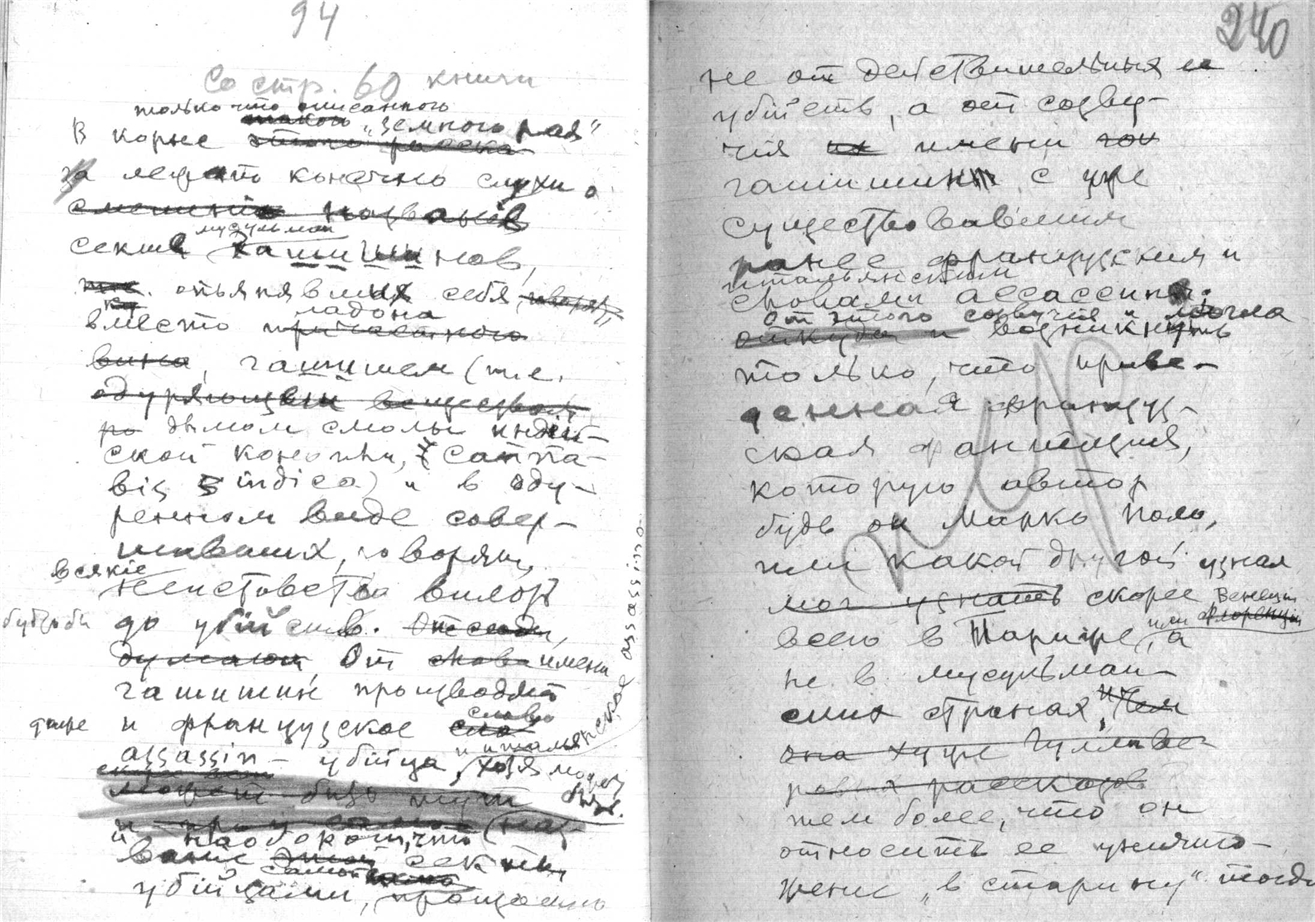 94
Со стр. 60 книги
только что описанного
такой „земного рая“
В корне этого расска-
за лежат конечно слухи о
смешении названия
мусульман
секты Хашишинов,
опьянявших себя
ладона
вместо причастного
вина, гашишем (т.е.
одуряющим веществом
дымом смолы индий-
ской конопли, Canna-
bis indica) и в оду-
ренном виде совер-
шавших, говорят,
всякие
неистовства вплоть
до убийств. Отсюда,
думают От слова имени
гашишин производят
даже и французское слово
assassin – убийца, и итальянское assassino
хотя может быть
может быть тут
и наоборот, что
вание секты
убийцами, произошло
240
не от действительных
убийств, а от созву-
чия их имени
гашишин с уже
существовавшим
ранее французским и
итальянским
словами ассассин;
От этого созвучия и могла
откуда и возникнуть
только, что приве-
денная француз-
ская фантазия,
которую автор
будь он Марко Поло,
или какой другой узнал
мог узнать скорее
всего в Париже, или Венеции Флоренции а
не в мусульман-
ских странах, Чем
она хуже Гулливе-
ровых рассказов
тем более, что он
относит ее уничто-
жение „в старину“ тогда